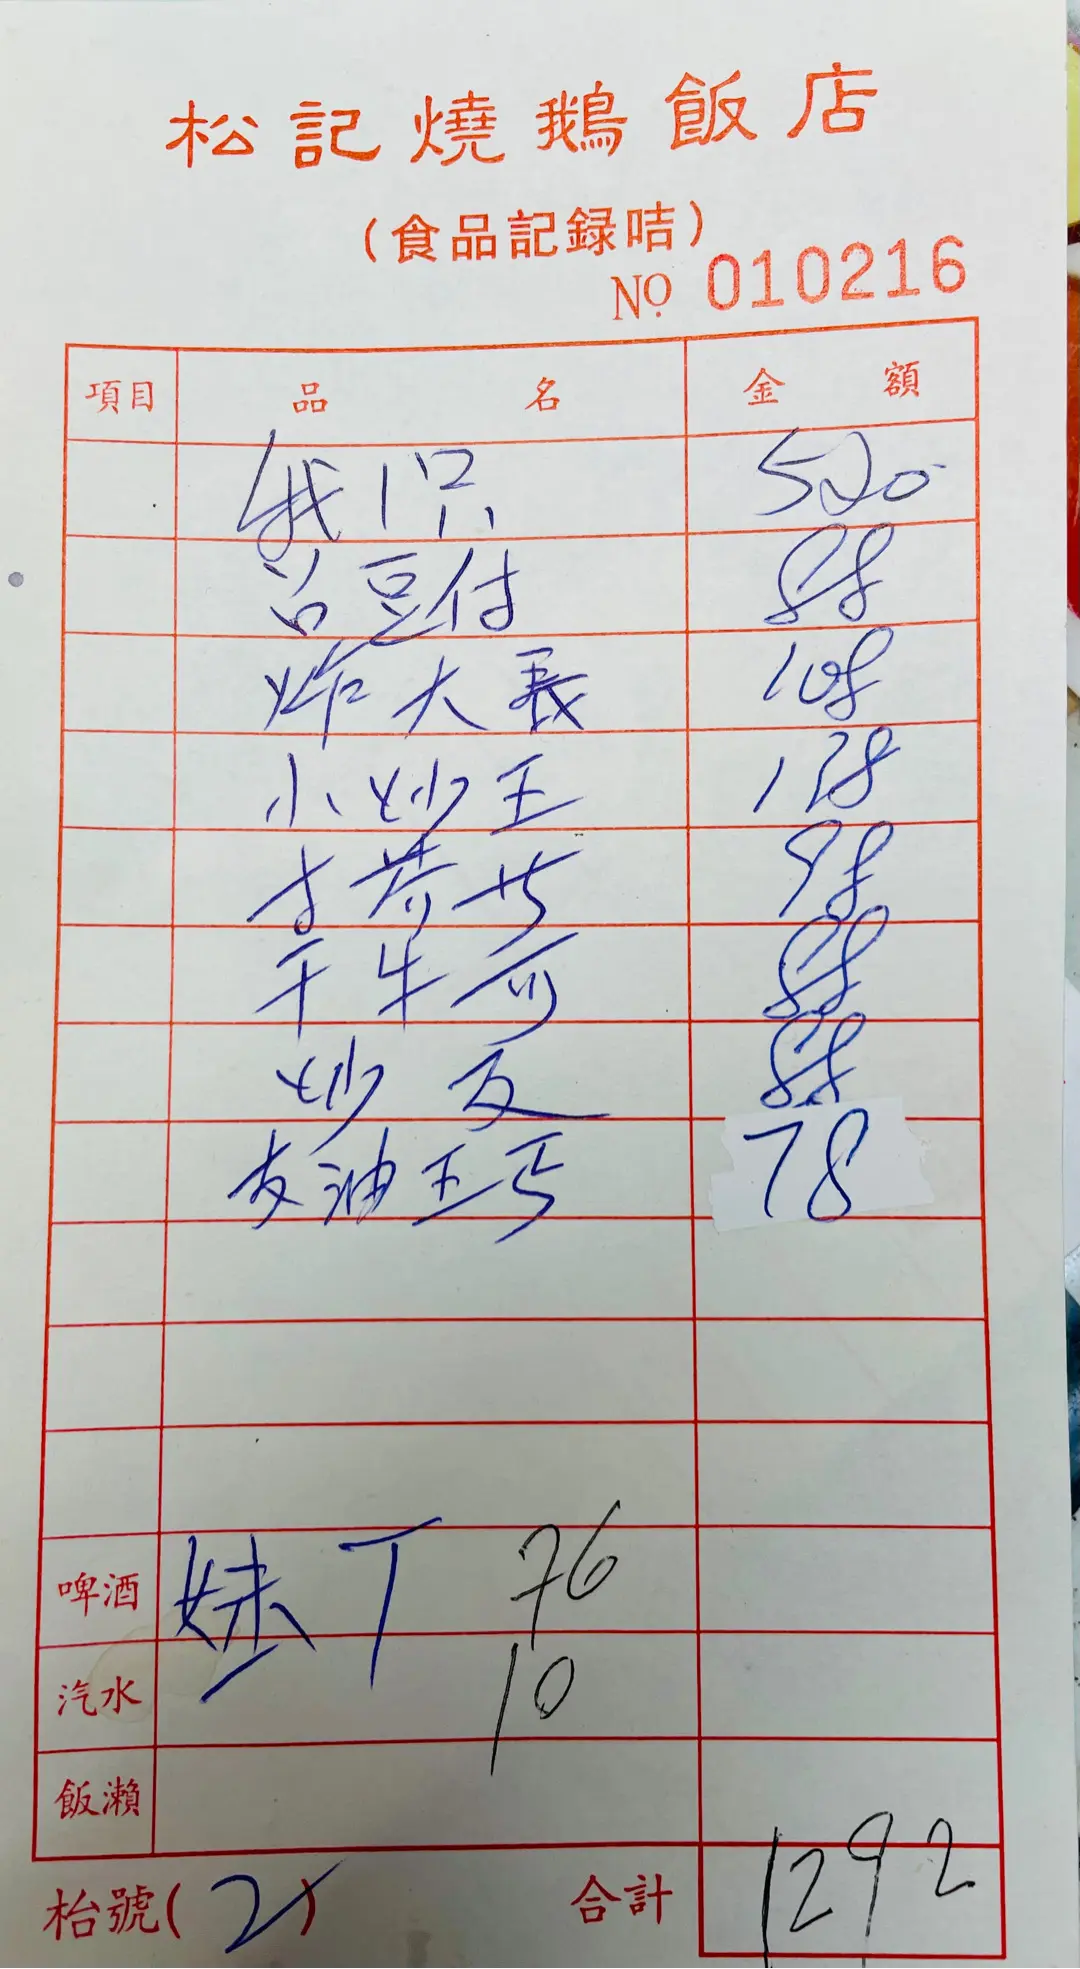 松記燒鵝飯店
(食品記録咭)
Nº 010216
項目 品名 金額
1只 520
豆付 88
炸大 108
小炒王 138
98
干牛 88
炒 88
油 78
啤酒 妹丁 76
汽水 10
飯瀨
枱號(2) 合計 1292